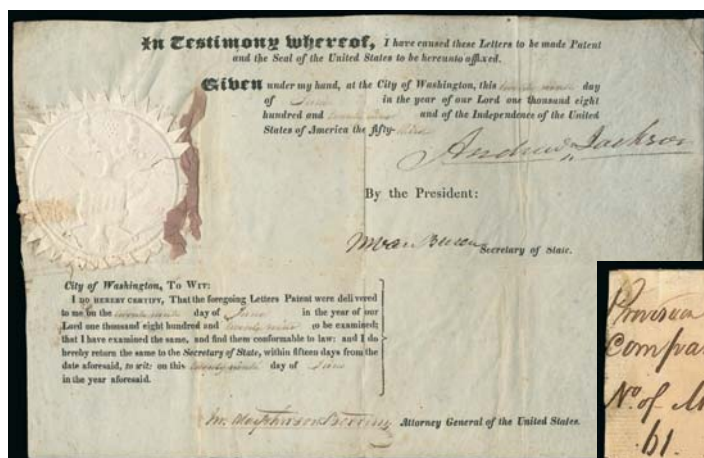 In Testimony whereof, I have caused these Letters to be made Patent
and the Seal of the United States to be hereunto affixed.
Given under my hand, at the City of Washington, this twenty ninth day
of June in the year of our Lord one thousand eight
hundred and twenty nine and of the Independence of the United
States of America the fifty-third
Andrew Jackson
By the President:
M van Buren Secretary of State.
City of Washington, To Wit:
I do hereby certify, That the foregoing Letters Patent were delivered
to me on the twenty ninth day of June in the year of our
Lord one thousand eight hundred and twenty nine to be examined;
that I have examined the same, and find them conformable to law: and I do
hereby return the same to the Secretary of State, within fifteen days from the
date aforesaid, to wit: on this twenty ninth day of June
in the year aforesaid.
Jn. Macpherson Berrien Attorney General of the United States.
Provision
Compa
No. of
61.